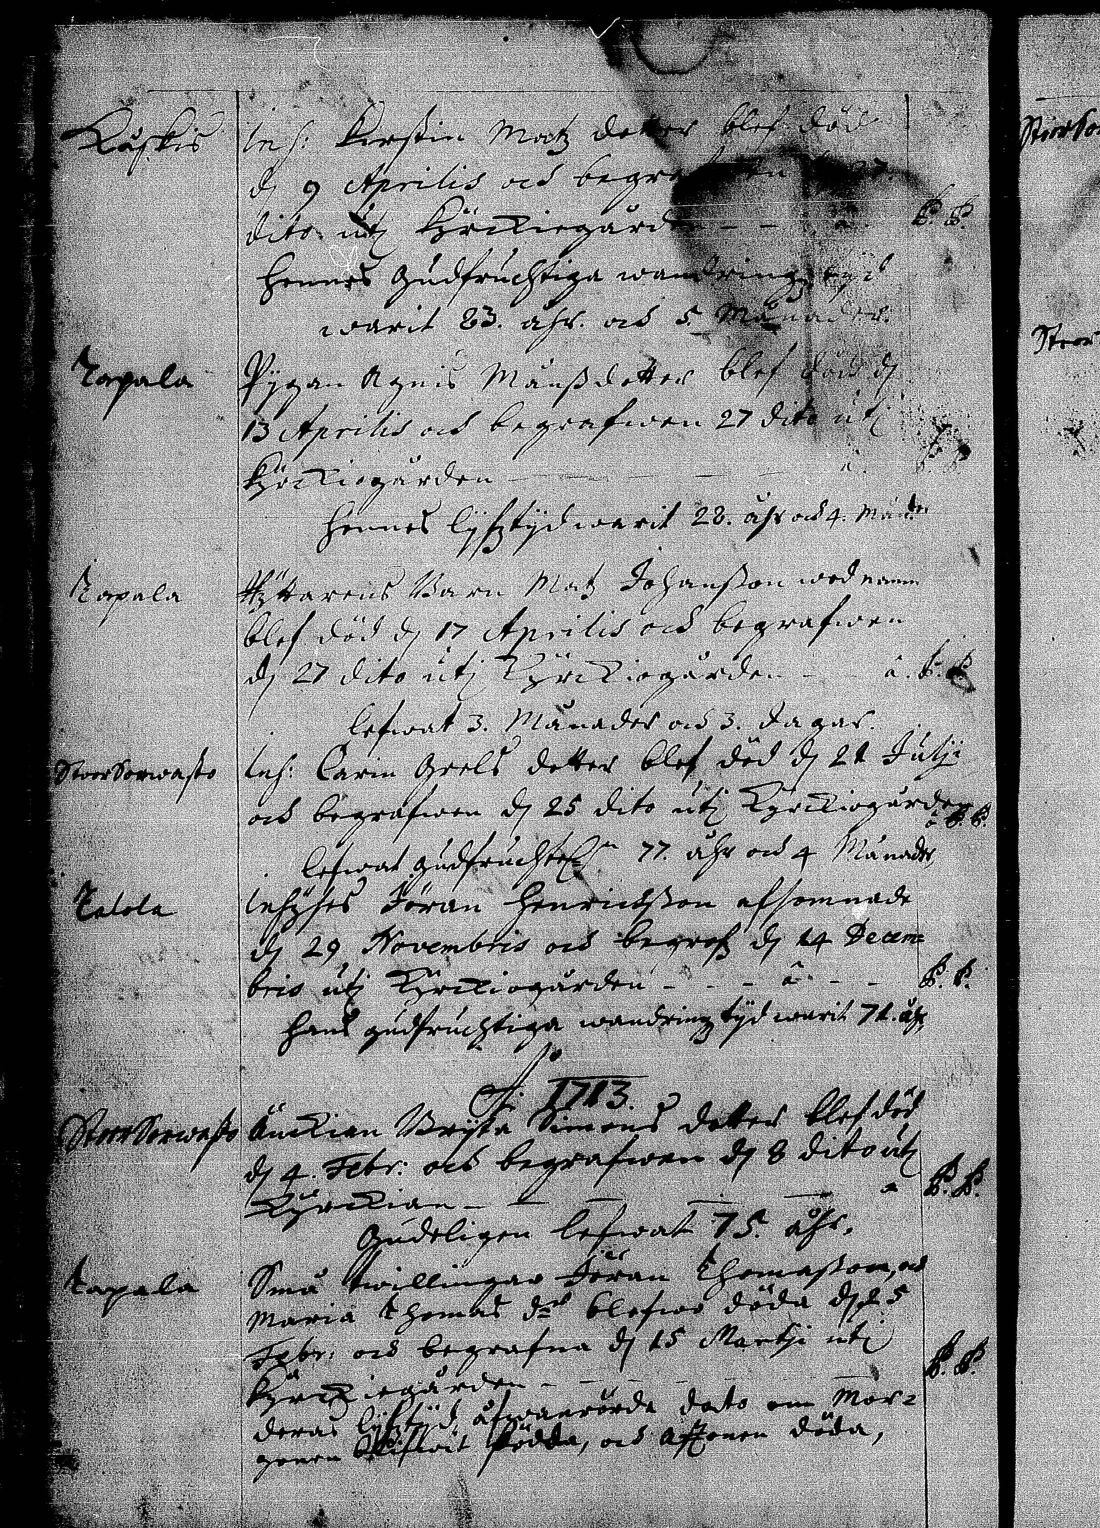 Kuskis
Inh: Kerstin Matz detter blef död
dj 9 Aprilis och begrafwen dj 27
dito utj Kyrckiegården - - â.
P. P.
Hennes gudfruchtiga wandringztijd
warit 83. åhr. och 5 Månader.
Tapala
Pygan Agnis Månsßdotter blef död dj
13 Aprilis och begrafwen 27 dito utj
Kyrckiogården - â. P. P.
Hennes lijfztijd warit 28. åhr och 4. Månader
Tapala
Ryttarens Barn Matz Johanßon wed namn
blef död dj 17 Aprilis och begrafwen
dj 27 dito utj Kyrckiogården - â. P. P.
lefwat 3. Månader och 3. dagar.
StoorSorwasto
Inh: Carin Grels dotter blef död dj 21 Julij
och begrafwen dj 25 dito utj Kyrckiogården
â P. P.
lefwat gudfruchtel:n 77. åhr och 4 Månader,
Talola
Inhyses Jöran Henrichßon afsomnade
dj 29 Novembris och begrafz dj 14 Decem=
bris utj Kyrckiogården - - - â - -
P. P.
Hans gudfruchtiga wandringztijd warit 71. åhr
Ao 1713.
StoorSorwasto
Änckian Brijta Simons dotter blef död
dj 4. Febr: och begrafwen dj 8 dito utj
Kyrckian - â P. P.
Gudeligen lefwat 75. åhr.
Tapala
Små twillingar Jöran Thomaßon, och
Maria Thomas dr blefwo döda dj 25
Febr: och begrafna dj 15 Martij utj
Kyrckiegården - - -
P. P.
deras lijfztijd, åfwanrörde dato om Mor=
gonen blifwit födda, och afftonen döda,
StoorSor
Stoor